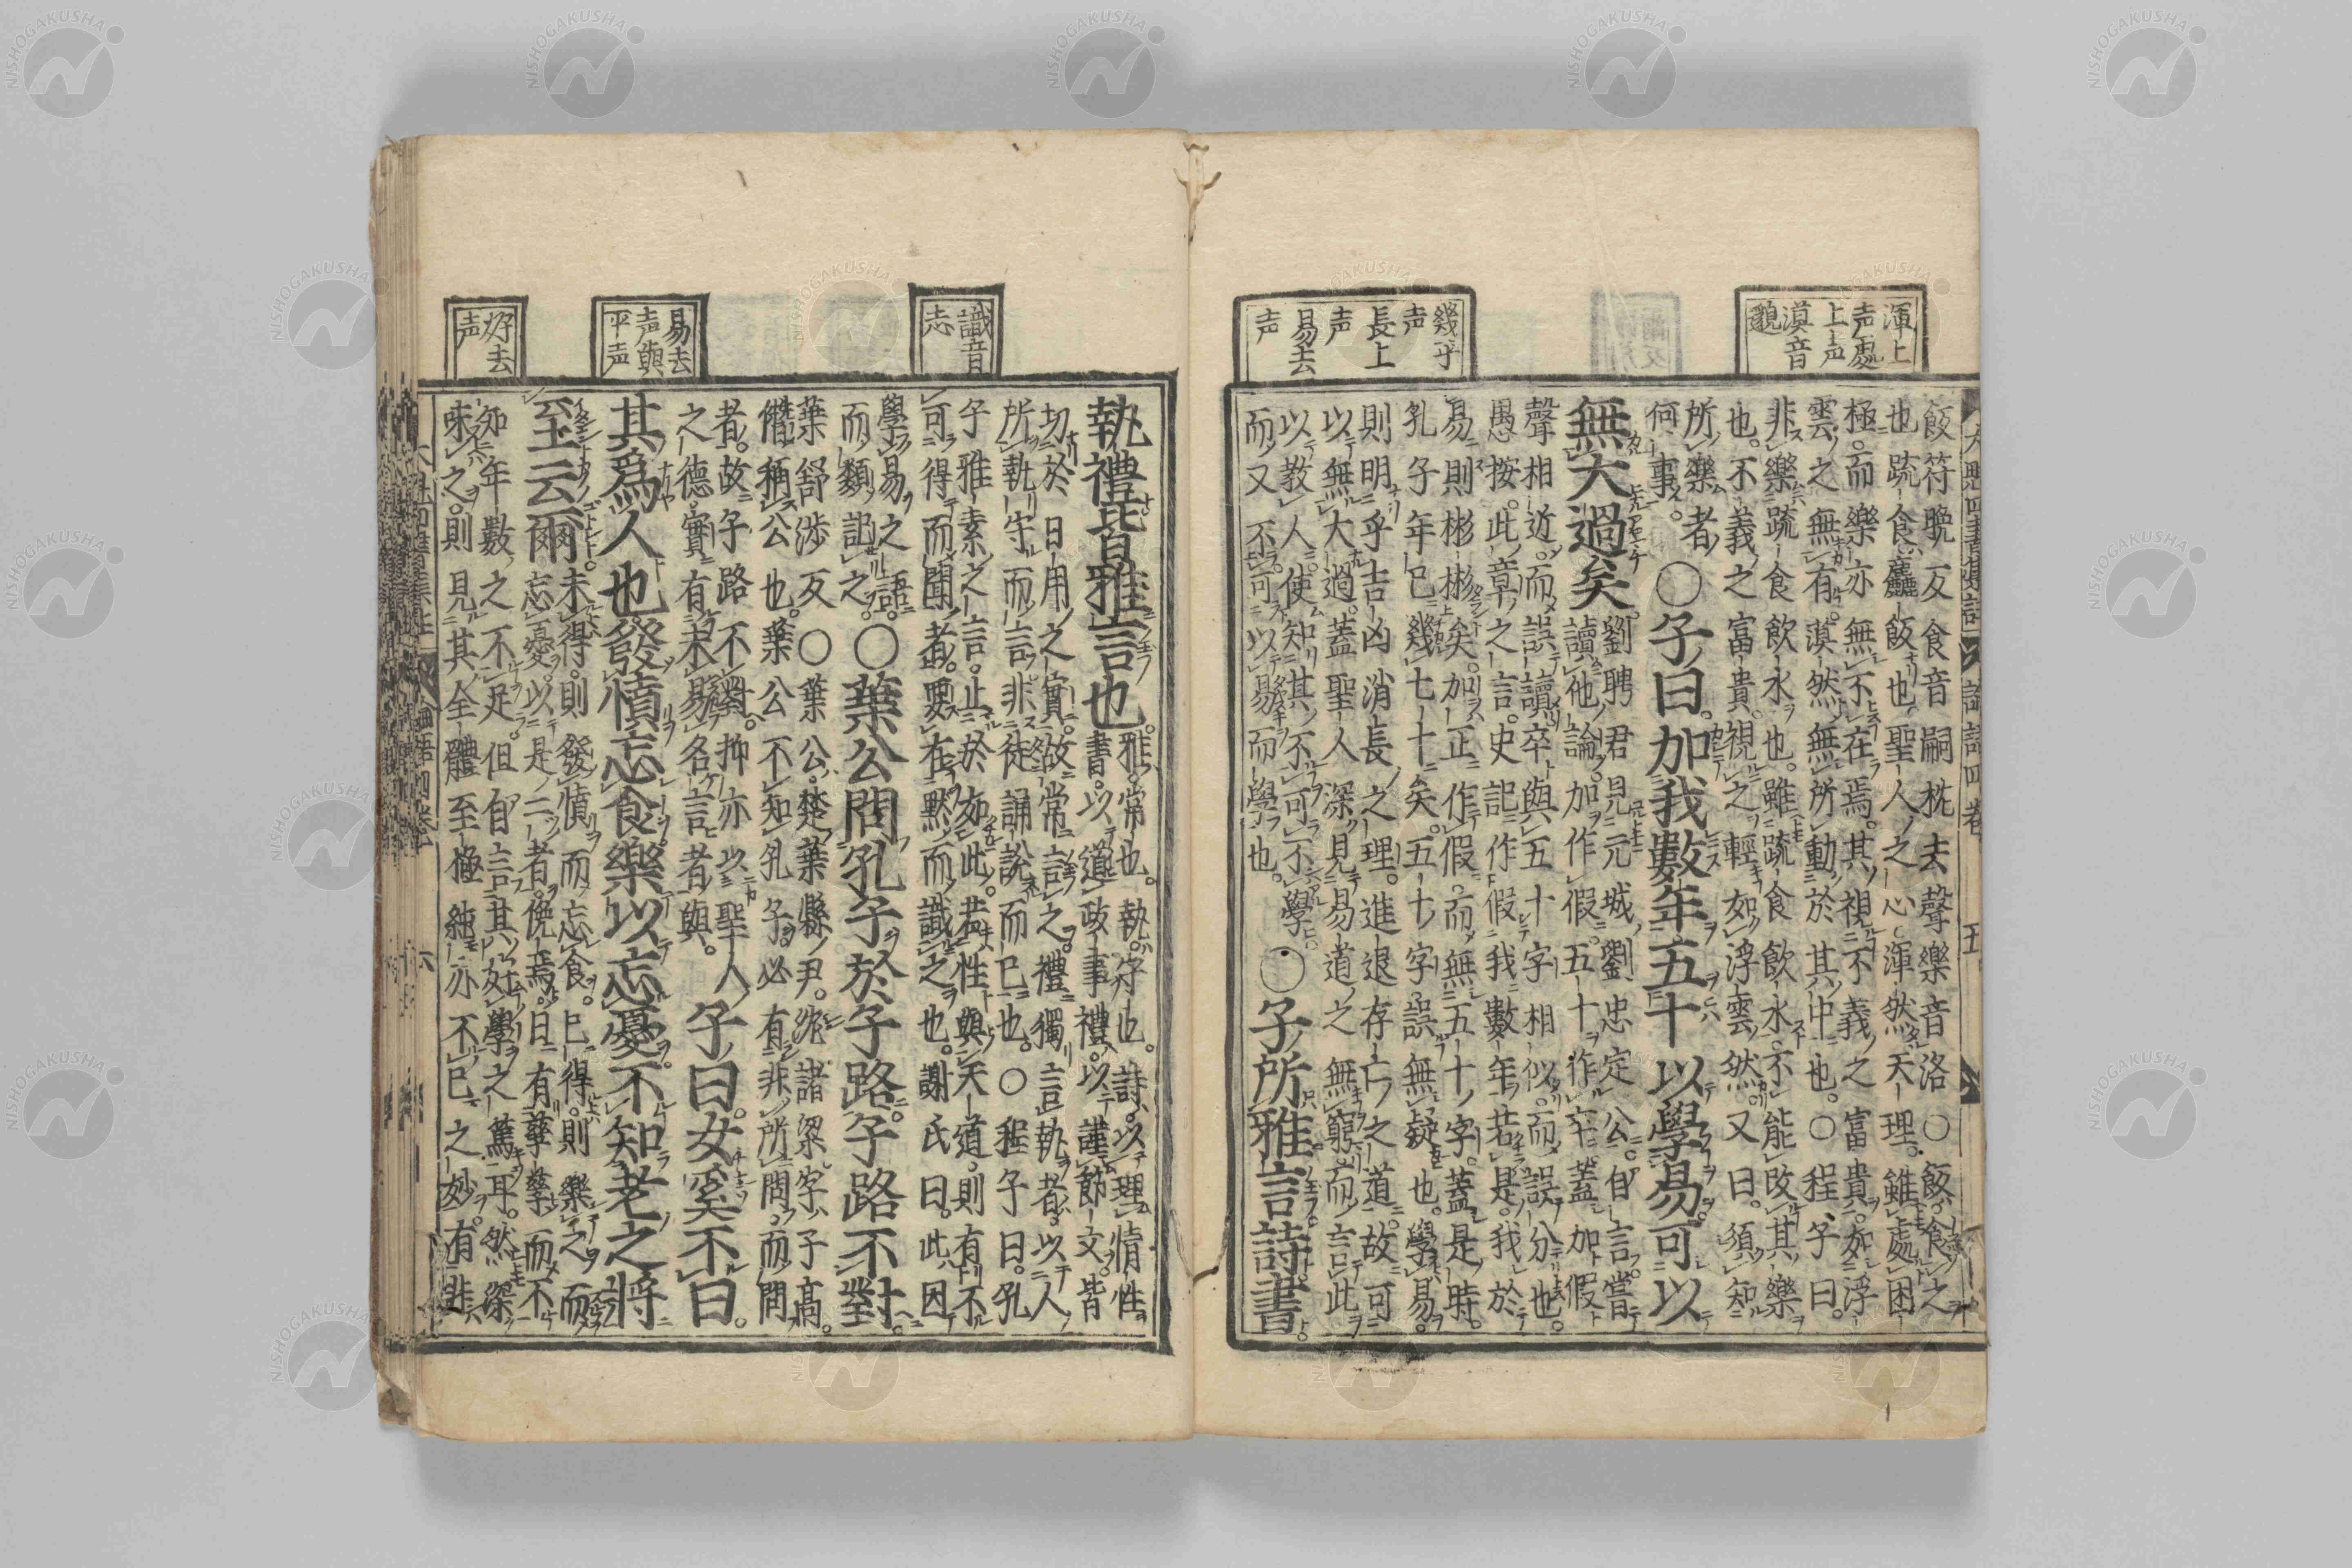 渾上
声處
上声
漠音
邈
幾平
声
長上
声
易去
声
飯符晚反食音嗣枕去聲樂音洛○飯。食之
也疏食。麤飯也。聖人之心。渾然天理。雖處困
極。而樂亦無不在焉。其視不義之富貴。如浮
雲之無有。漠然無所動於其中也。○程子曰。
非樂疏食飲水也。雖疏食飲水。不能改其樂
也。不義之富貴。視之輕如浮雲然。又曰。須知
所樂者
何事。
○子曰。加我數年五十以學易。可以
無大過矣。
劉聘君見元城劉忠定公。自言。嘗
讀他論。加作假。五十作卒。蓋加假
聲相近。而誤讀卒與五十字相似。而誤分也。
愚按。此章之言。史記作假我數年。若是。我於
易則彬彬矣。加正作假。而無五十字。蓋是時。
孔子年已幾七十矣。五十字誤無疑也。學易。
則明乎吉凶消長之理。進退存亡之道。故可
以無大過。蓋聖人深見易道之無窮。而言此
以教人。使知其不可不學。
而又不可以易而學也。
○子所雅言詩書
識音
志
易去
声與
平声
好去
声
執禮皆雅言也。
雅。常也。執。守也。詩。以理情性
書。以道政事。禮。以謹節文。皆
切於日用之實。故常言之。禮獨言執者。以人
所執守而言。非徒誦說而已也。○程子曰。孔
子雅素之言。止於如此。若性與天道。則有不
可得而聞者。要在默而識之也。謝氏曰。此因
學易之語。
而類記之。
○葉公問孔子於子路。子路不對。
葉舒涉反○葉公。楚葉縣尹。沈諸梁字子高。
僭稱公也。葉公不知孔子。必有非所問。而問
者。故子路不對。抑亦以聖人
之德。實有未易名言者與。
子曰。女奚不曰。
其爲人也發憤忘食樂以忘憂不知老之將
至云爾。
未得。則發憤而忘食。已得。則樂之而
忘憂。以是二者。俛焉。日有孳孳而不
知年數之不足。但自言其好學之篤耳。然深
味之。則見其全體至極純亦不已之妙。有非